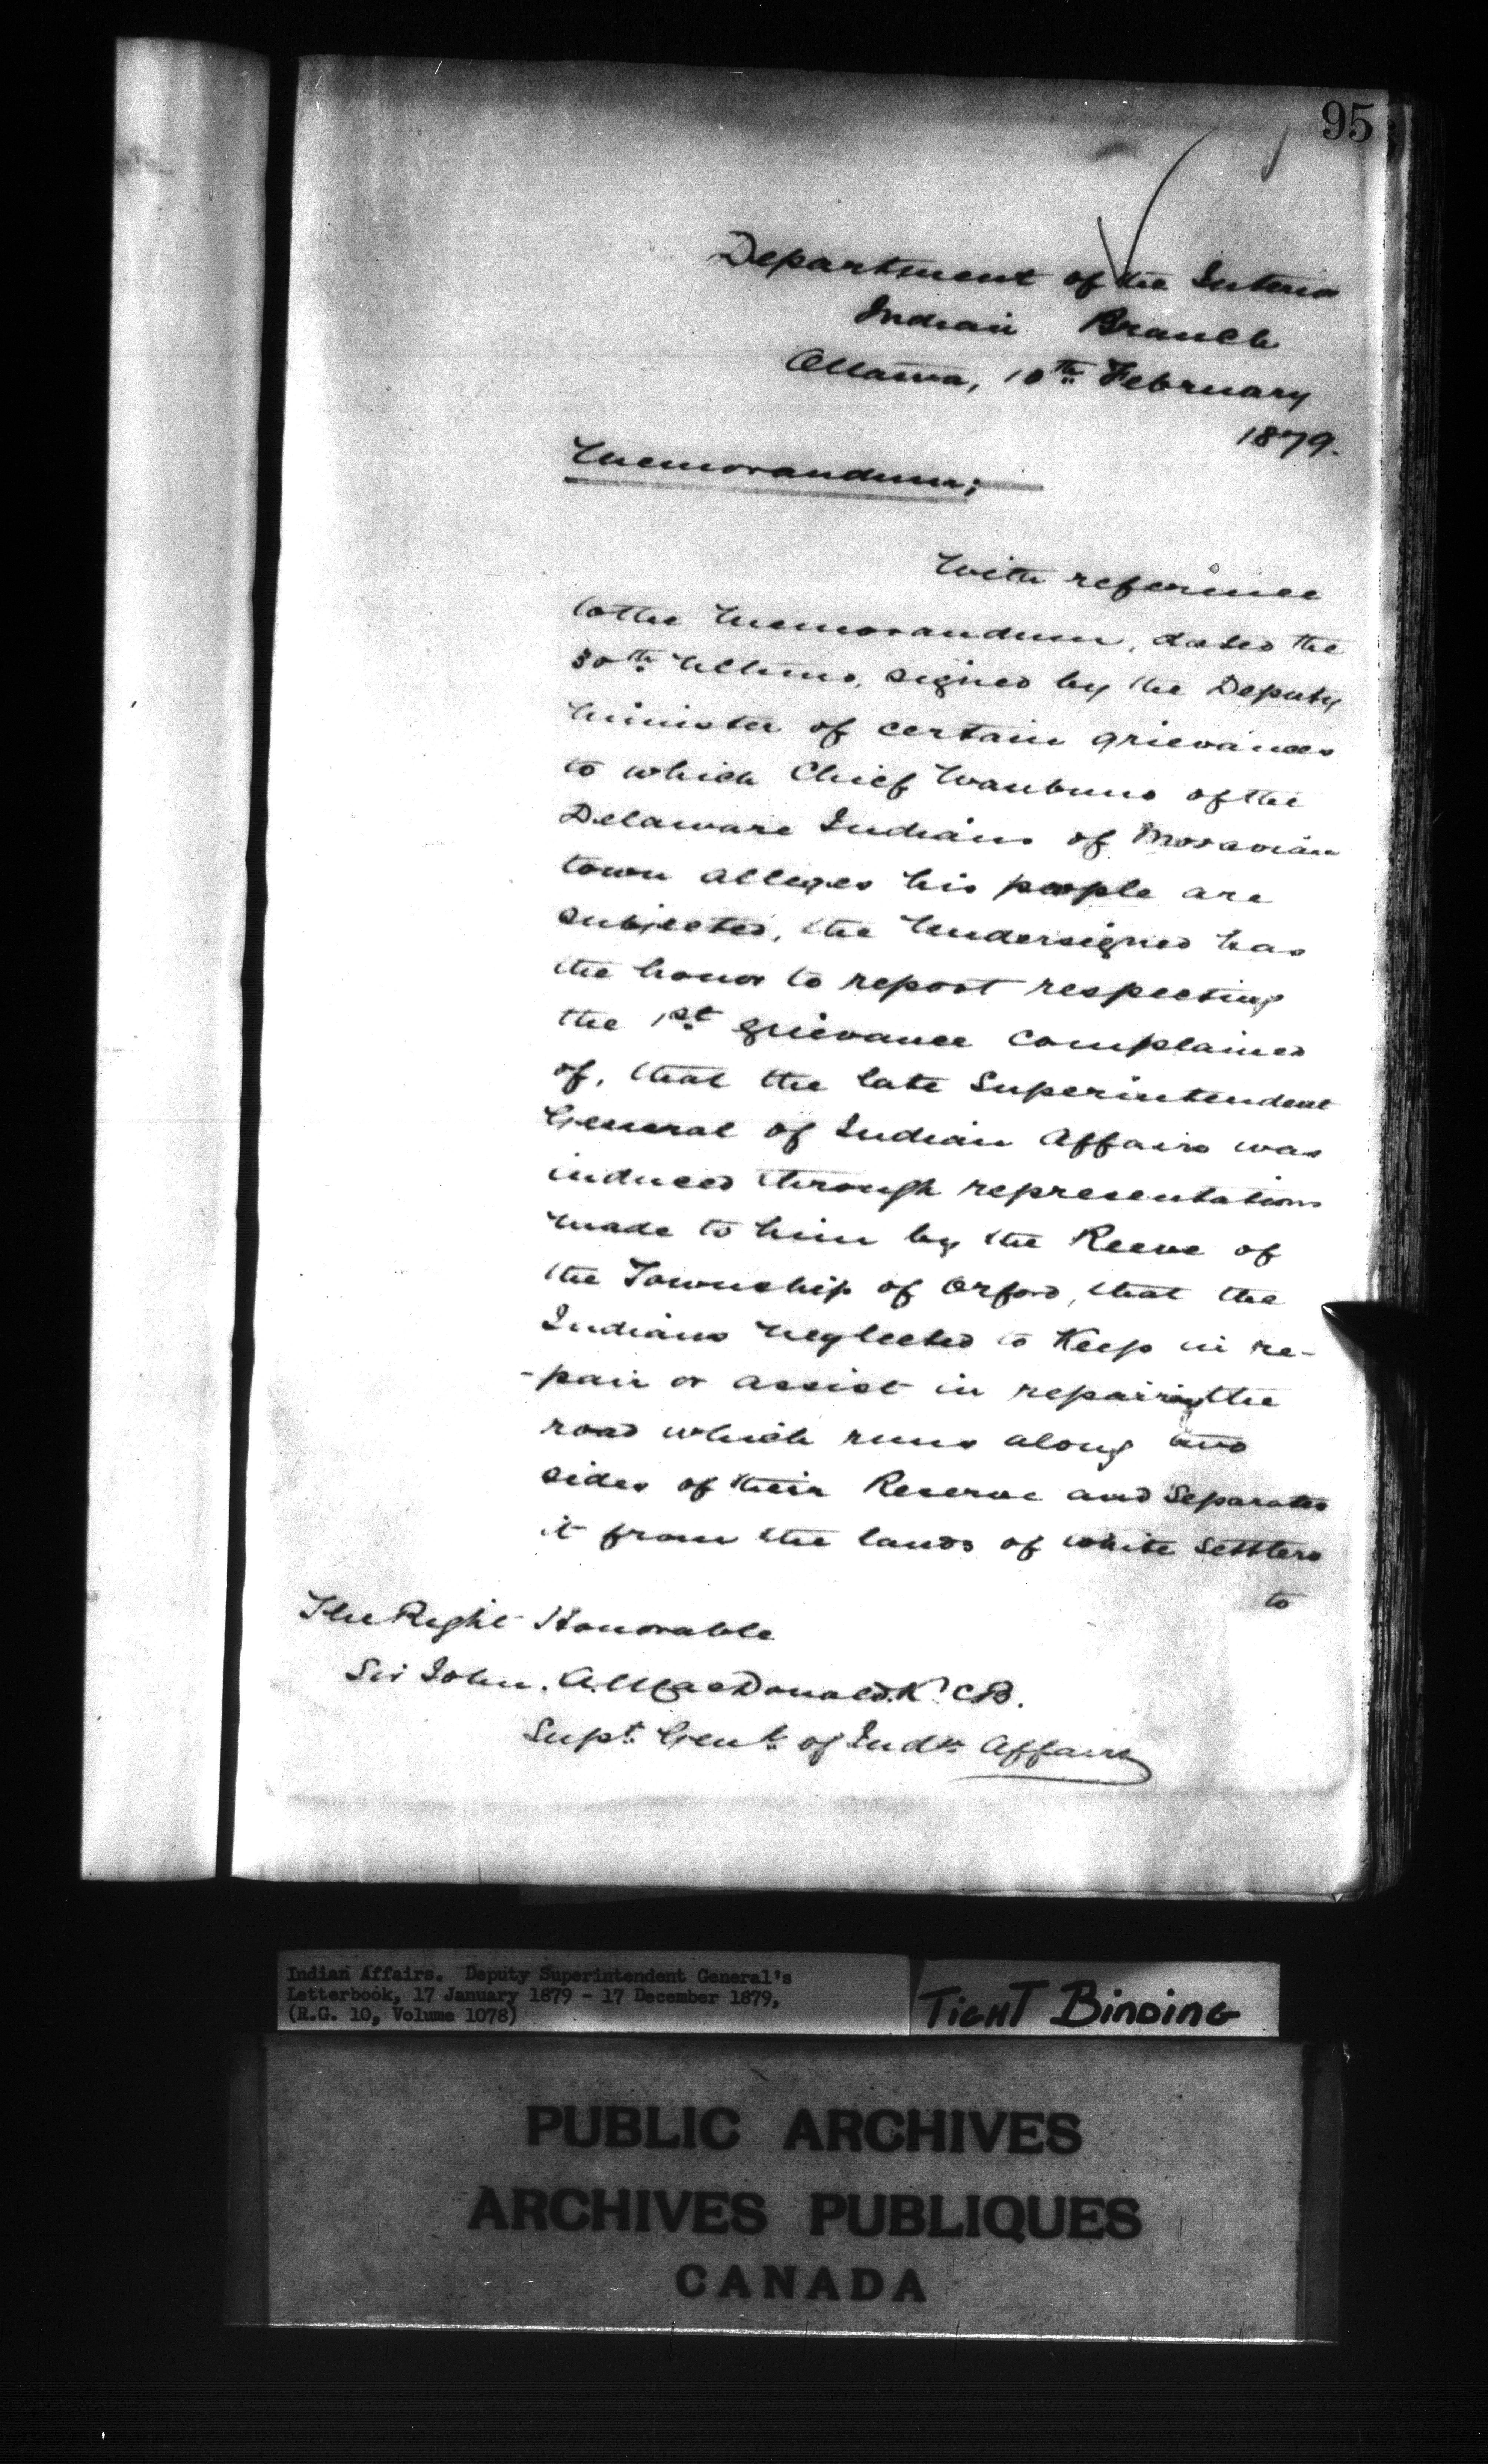 95
Department of the Interior
Indian Branch
Ottawa, 10th February
1879.
Memorandum;
With reference
to the Memorandum, dated the
30th Ultimo, signed by the Deputy
Minister of certain grievances
to which Chief Waubuno of the
Delaware Indians of Moravian
town alleges his people are
subjected, the Undersigned has
the honor to report respecting
the 1st grievance complained
of, that the late Superintendent
General of Indian Affairs was
induced through representations
made to him by the Reeve of
the Township of Orford, that the
Indians neglected to Keep in re-
-pair or assist in repairing the
road which runs along two
sides of their Reserve and Separates
it from the lands of white Settlers
to
The Right Honorable
Sir John. A. MacDonald. K. C.B.
Supt. Genl. of Indn. Affairs
Indian Affairs. Deputy Superintendent General's
Letterbook, 17 January 1879 - 17 December 1879,
(R.G. 10, Volume 1078)
TIGHT BINDING
PUBLIC ARCHIVES
ARCHIVES PUBLIQUES
CANADA